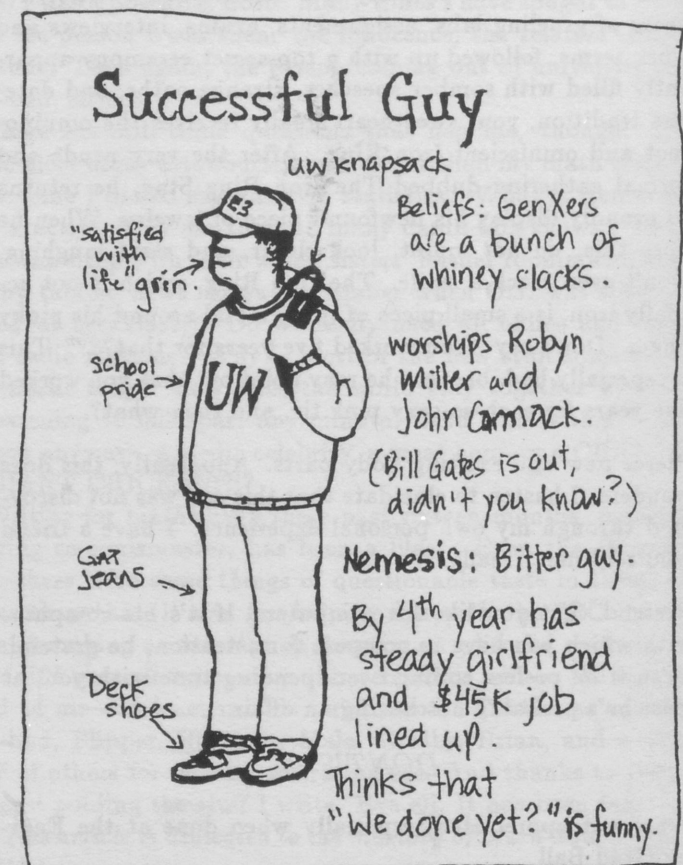 Successful Guy
UW Knapsack
E3
"satisfied
with
life" grin.
Beliefs: GenXers
are a bunch of
whiney slacks
school
pride
UW
worships Robyn
Miller and
John Carmack.
(Bill Gates is out
didn't you know?)
GAP
Jeans
Nemesis: Bitter guy
By 4th year has
steady girlfriend
and $45K job
lined up
Deck
shoes
Thinks that
"We done yet?" is funny.